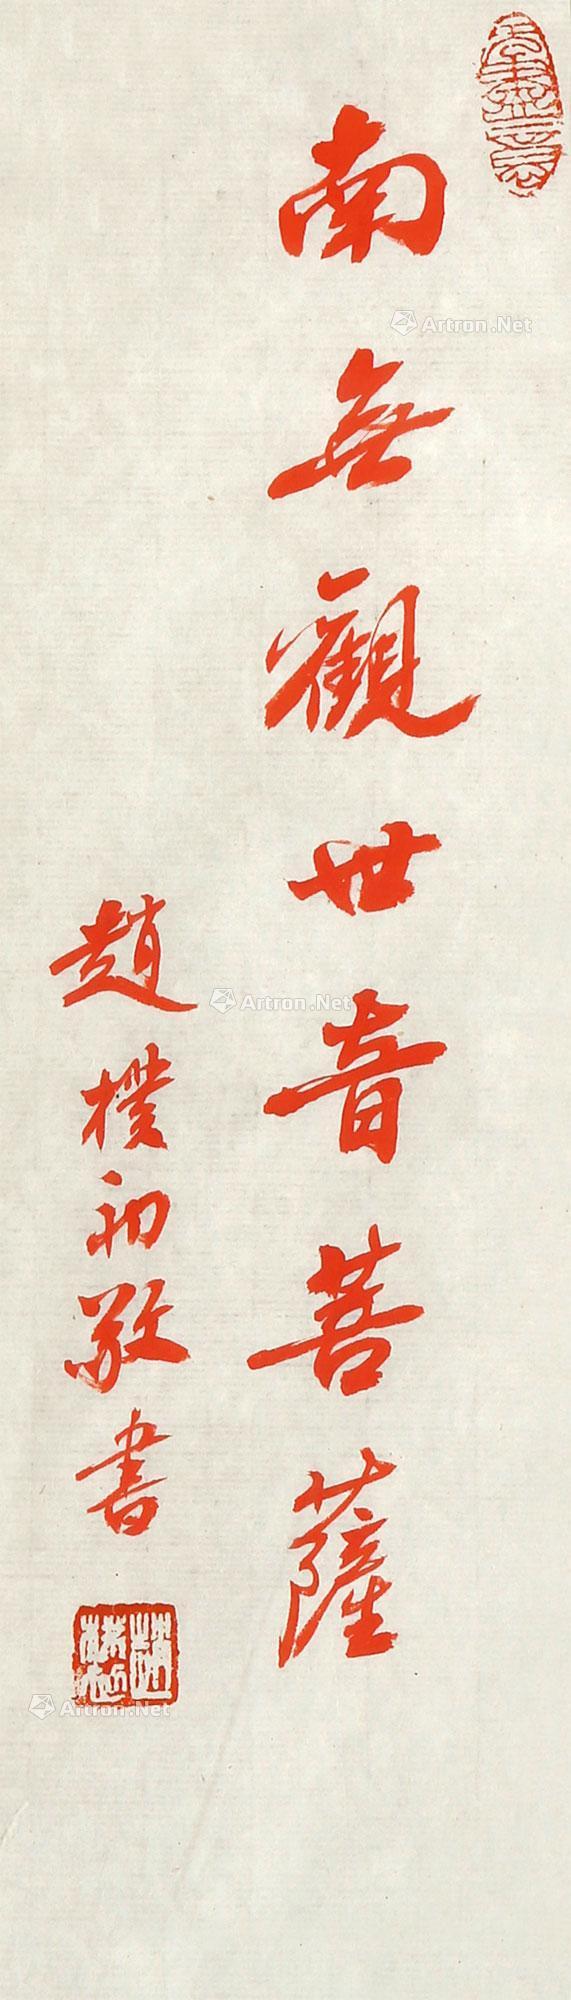 南無觀世音菩薩
趙樸初敬書
Artron.Net
Artron.Net
Artron.Net